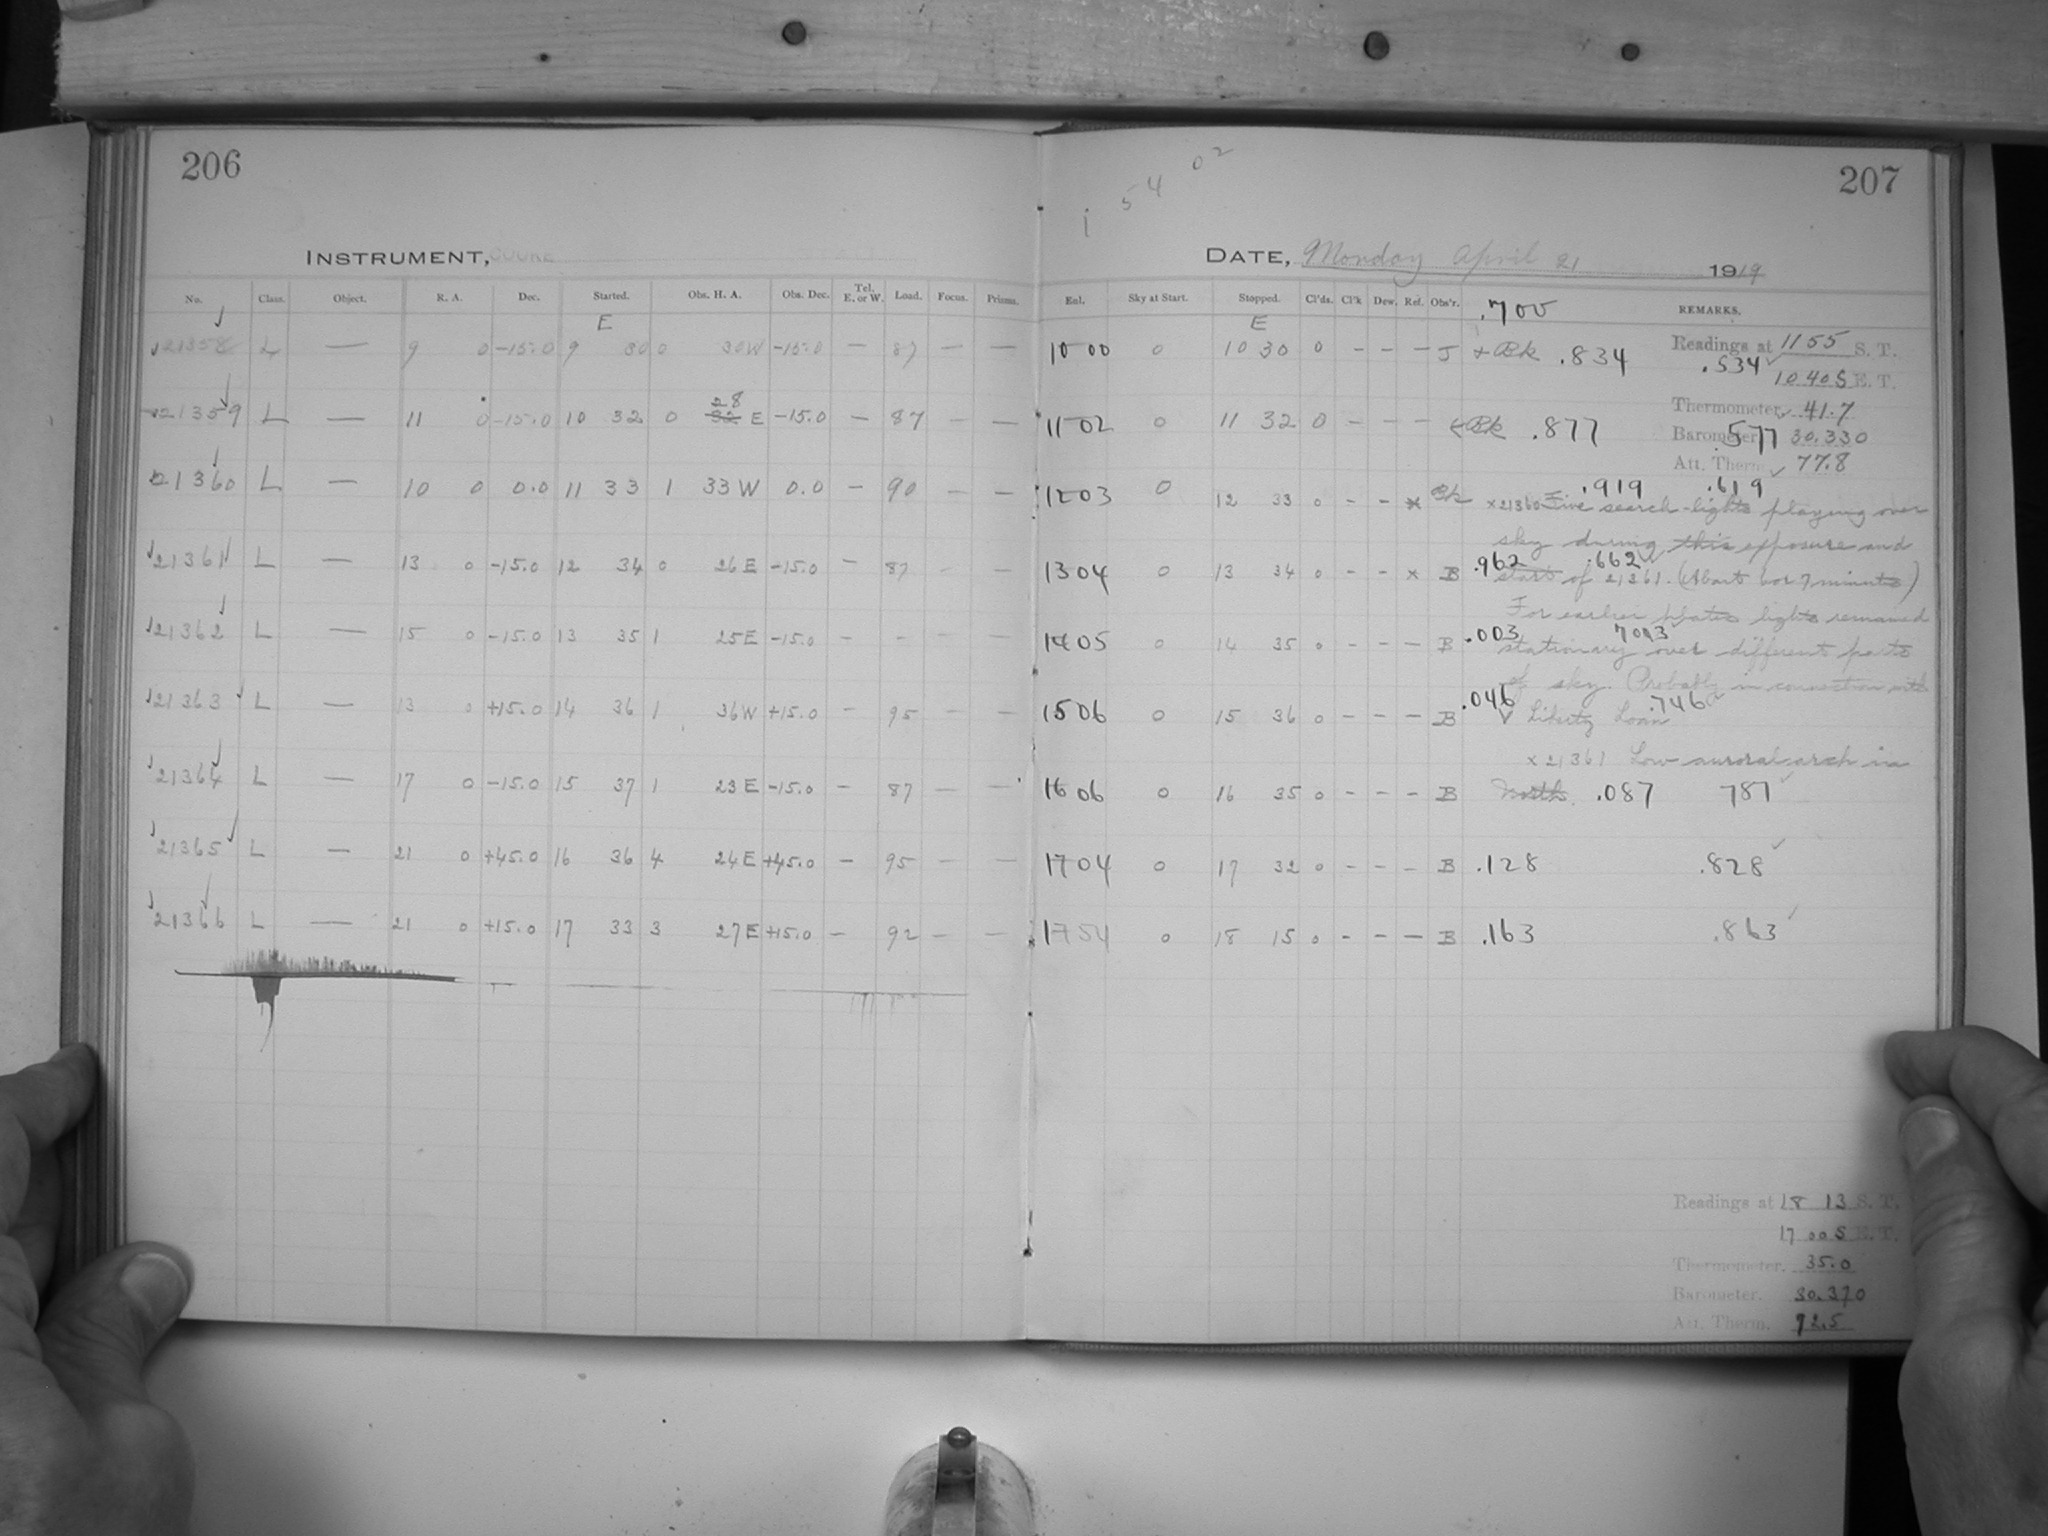 206
INSTRUMENT, COOKE
No. Class. Object. R. A. Dec. Started. Obs. H. A. Obs. Dec. Tel. E. or W. Load. Focus. Prisms.
E
21358 L — 9 0 -15.0 9 30 0 30W -15.0 — 87 — —
28
21359 L — 11 0 -15.0 10 32 0 32 E -15.0 — 87 — —
21360 L — 10 0 0.0 11 33 1 33 W 0.0 — 90 — —
21361 L — 13 0 -15.0 12 34 0 26 E -15.0 — 87 — —
21362 L — 15 0 -15.0 13 35 1 25E -15.0 - - - -
21363 L — 13 0 +15.0 14 36 1 36W +15.0 — 95 — —
21364 L — 17 0 -15.0 15 37 1 23 E -15.0 — 87 — —
21365 L — 21 0 +45.0 16 36 4 24E +45.0 — 95 — —
21366 L — 21 0 +15.0 17 33 3 27E +15.0 — 92 — —
207
1 5 4 0 2
DATE, Monday April 21 1919
Eul. Sky at Start. Stopped. Cl'ds. Cl'k Dew. Ref. Obs'r. .700 REMARKS.
E
10 00 0 10 30 0 - - - J + Bk .834 .534
Readings at 11 55 S. T.
10 40 S E. T.
Thermometer, 41.7
11 02 0 11 32 0 - - - Bk .877 .577
Barometer 30.330
Att. Therm. 77.8
12 03 0 12 33 0 - - x Bk .919 .619
x21360 Five search-lights playing over
sky during this exposure and
13 04 0 13 34 0 - - x B .962 .662
start of 21361. (About 7 minutes)
For earlier plates lights remained
14 05 0 14 35 0 - - - B .003 7003
stationary over different parts
of sky. Probably in connection with
15 06 0 15 36 0 - - - B .046 .746
V Liberty Loan
x 21361 Low auroral arch in
16 06 0 16 35 0 - - - B North. .087 787
17 04 0 17 32 0 - - - B .128 .828
17 54 0 18 15 0 - - - B .163 .863
Readings at 18 13 S. T.
17 00 S E. T.
Thermometer. 35.0
Barometer. 30.370
Att. Therm. 92.5